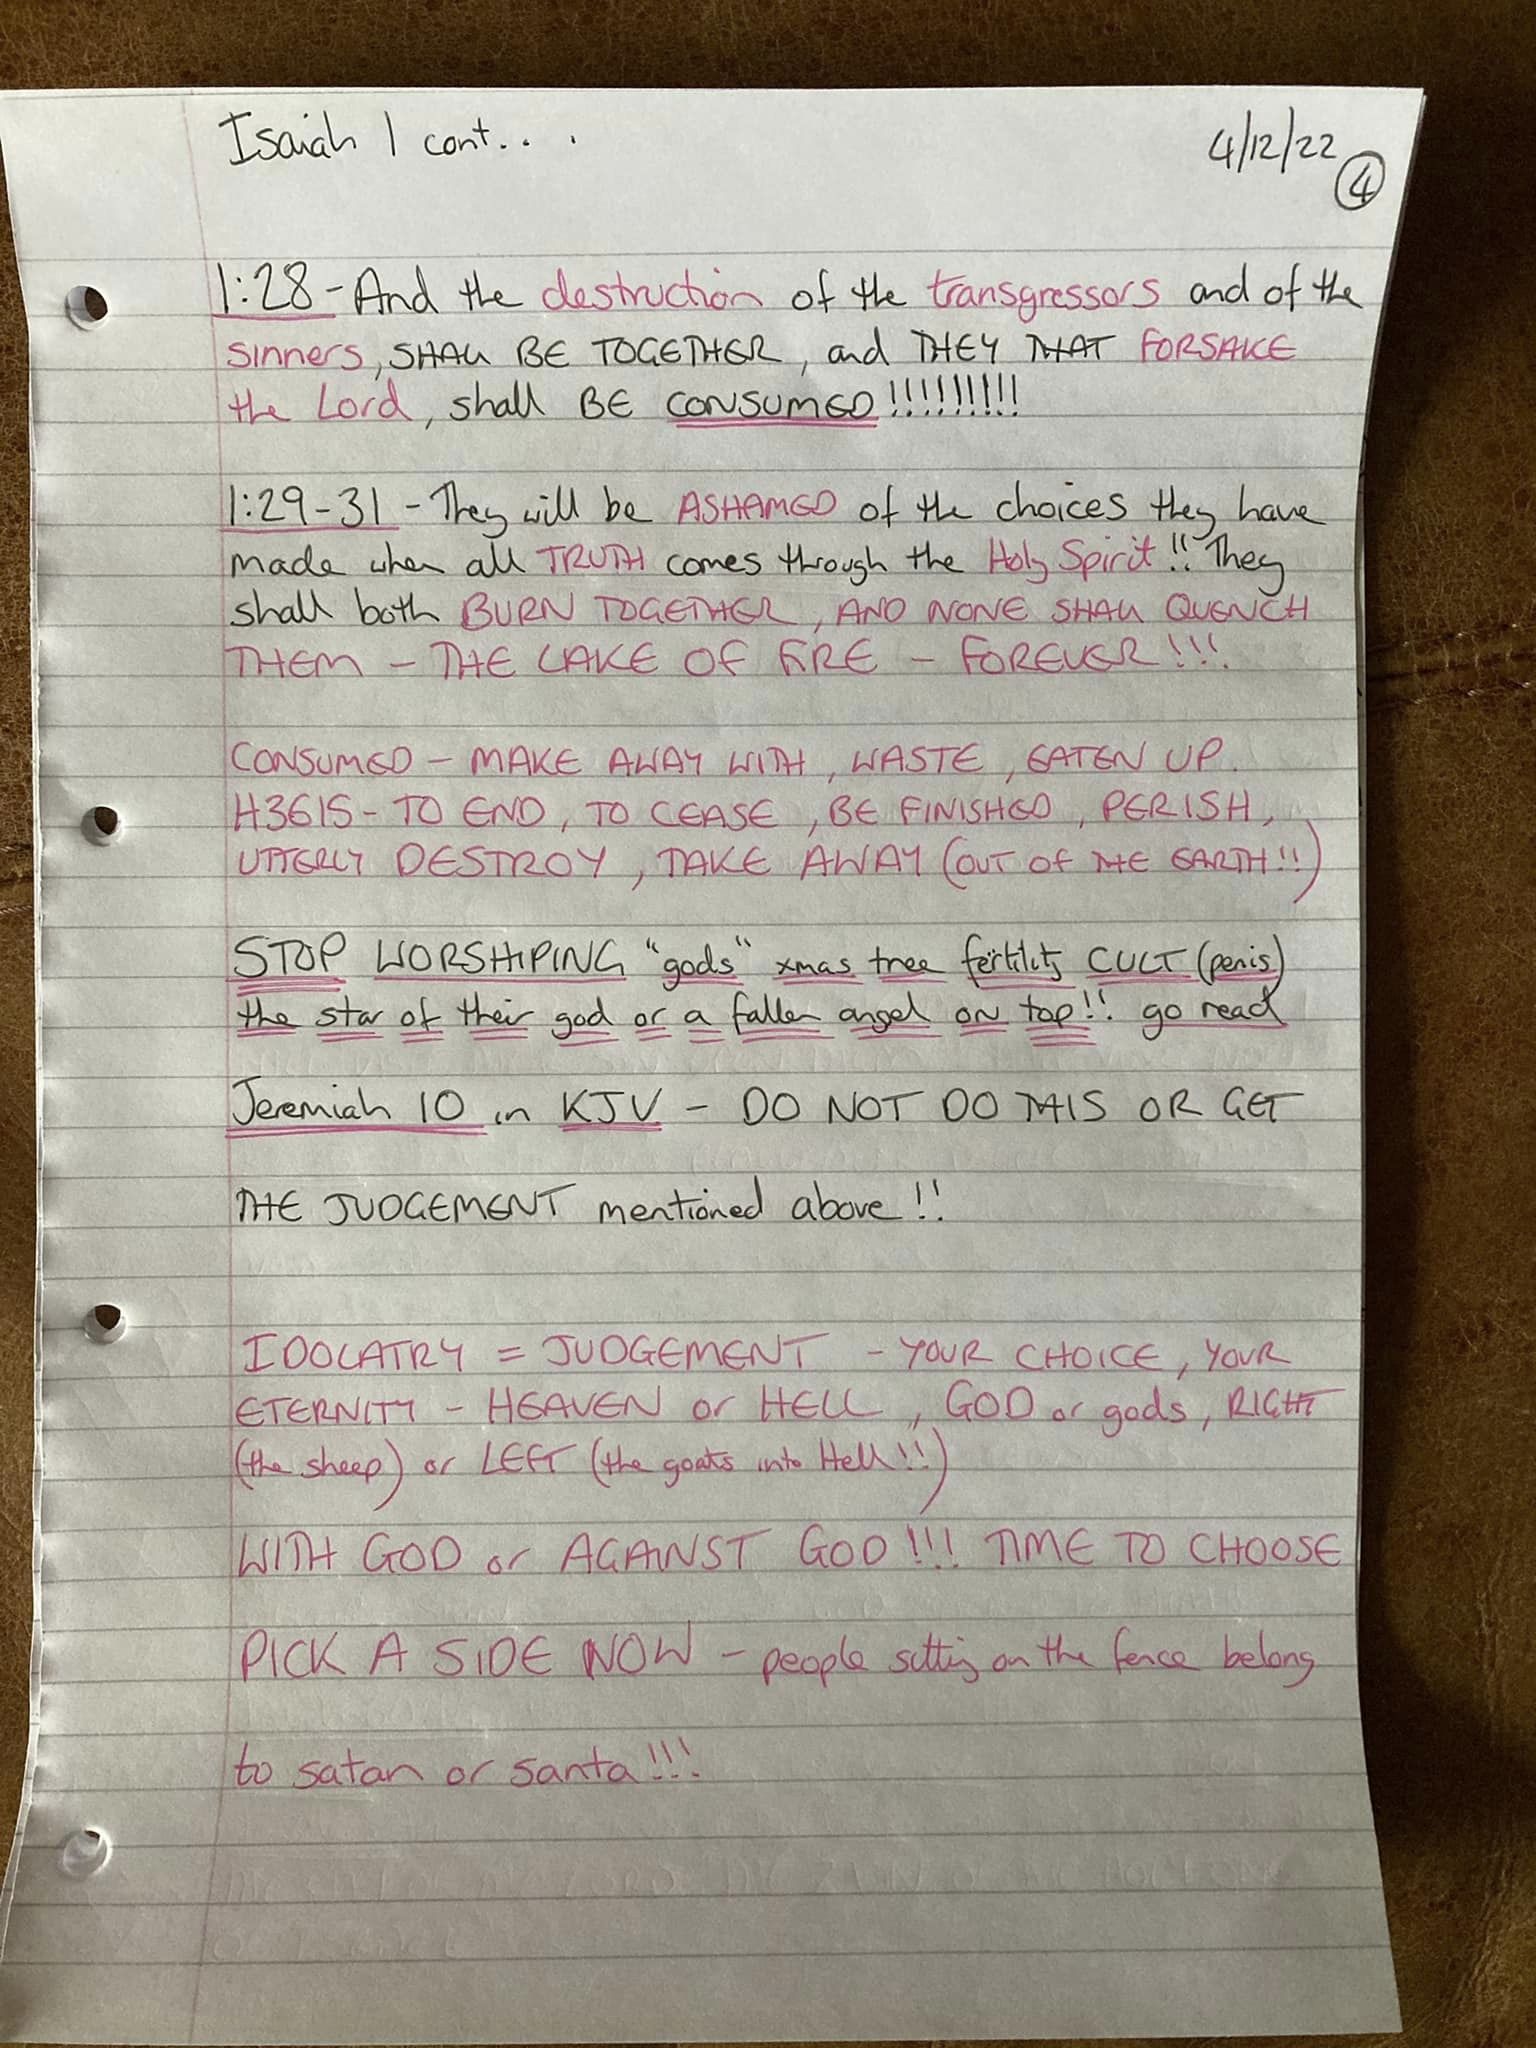 Isaiah 1 cont...
4/12/22
4
1:28 - And the destruction of the transgressors and of the
sinners, SHALL BE TOGETHER, and THEY THAT FORSAKE
the Lord, shall BE CONSUMED!!!!!!!!!
1:29-31 - They will be ASHAMED of the choices they have
made when all TRUTH comes through the Holy Spirit!! They
shall both BURN TOGETHER, AND NONE SHALL QUENCH
THEM - THE LAKE OF FIRE - FOREVER!!!
CONSUMED - MAKE AWAY WITH, WASTE, EATEN UP.
H3615 - TO END, TO CEASE, BE FINISHED, PERISH,
UTTERLY DESTROY, TAKE AWAY (OUT OF THE EARTH!!)
STOP WORSHIPING "gods" xmas tree fertility CULT (penis)
the star of their god or a fallen angel on top!! go read
Jeremiah 10 in KJV - DO NOT DO THIS OR GET
THE JUDGEMENT mentioned above!!
IDOLATRY = JUDGEMENT - YOUR CHOICE, YOUR
ETERNITY - HEAVEN or HELL, GOD or gods, RIGHT
(the sheep) or LEFT (the goats into Hell!!)
WITH GOD or AGAINST GOD!!! TIME TO CHOOSE
PICK A SIDE NOW - people sitting on the fence belong
to satan or santa!!!